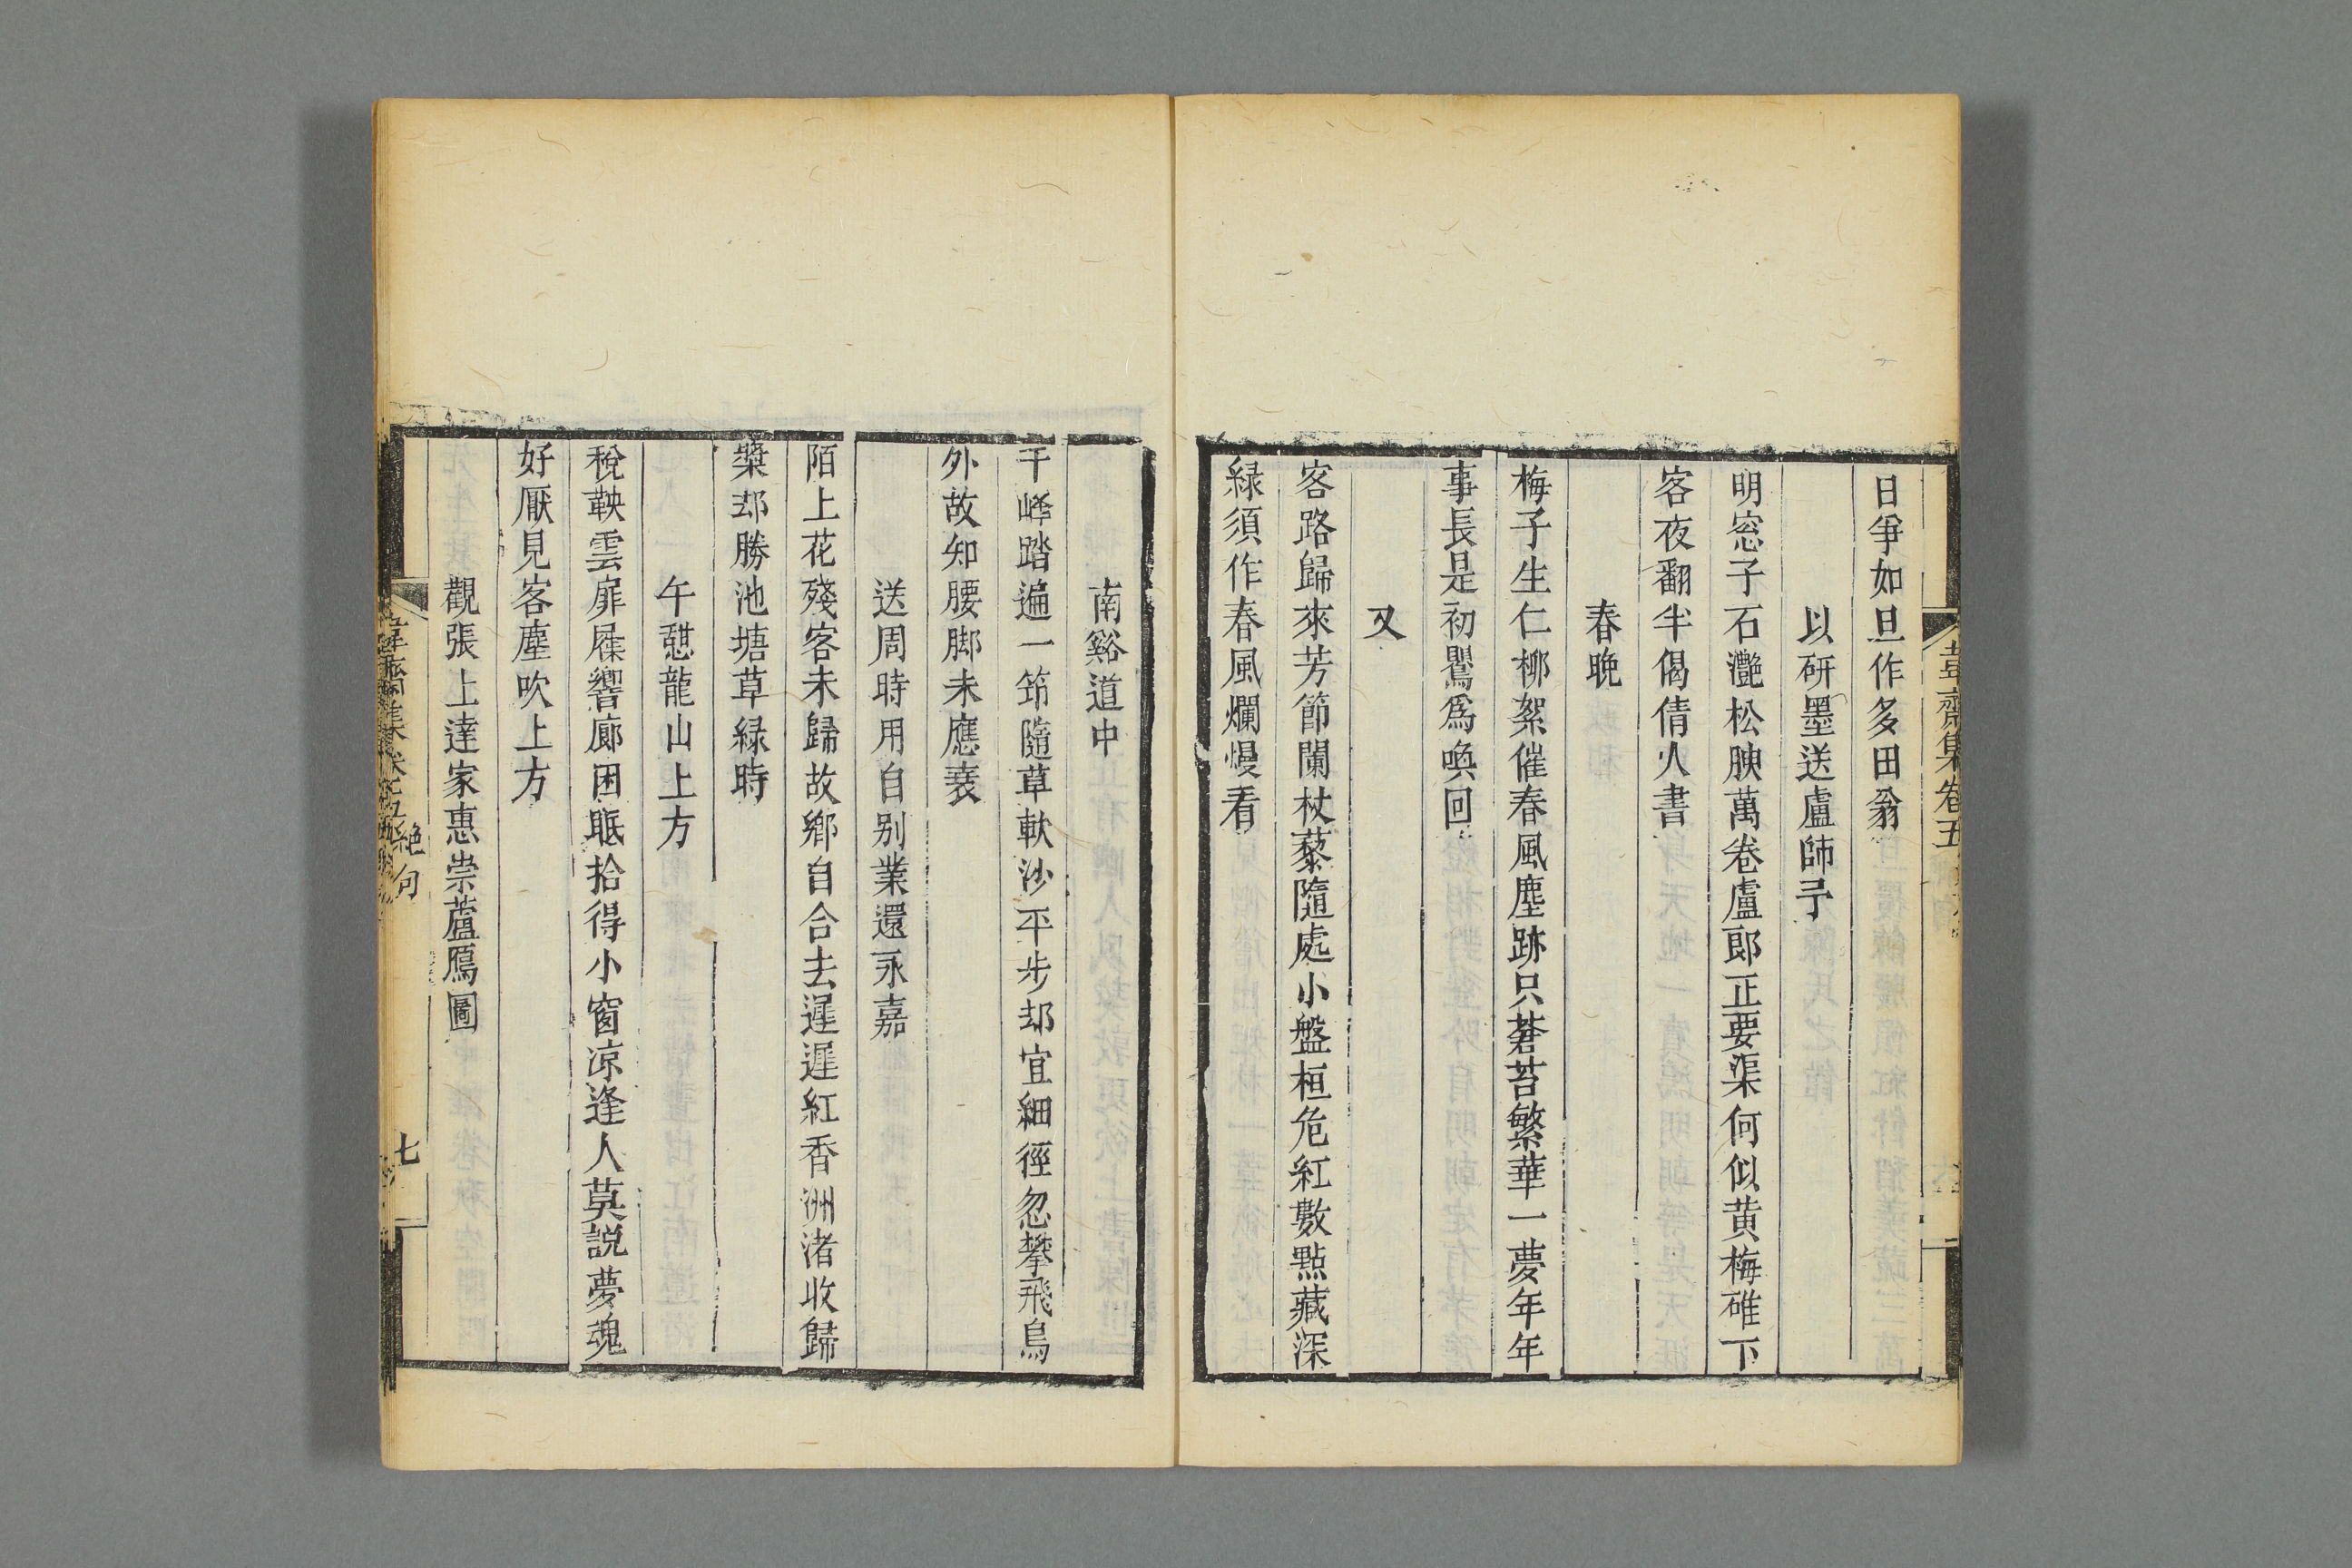 韋齋集卷五
日爭如旦作多田翁
以研墨送盧師予
明窓子石灔松腴萬卷盧郎正要渠何似黄梅碓下
客夜翻半偈倩人書
春晚
梅子生仁柳絮催春風塵跡只蒼苔繁華一夢年年
事長是初鸎爲喚回
又
客路歸來芳節闌杖藜隨處小盤桓危紅數點藏深
緑須作春風爛熳看
南谿道中
千峰踏遍一筇隨草軟沙平步却宜細徑忽攀飛鳥
外故知腰脚未應衰
送周時用自别業還永嘉
陌上花殘客未歸故鄉自合去遲遲紅香洲渚收歸
槳却勝池塘草緑時
午憇龍山上方
稅鞅雲扉屧響廊困眠拾得小窗凉逢人莫説夢魂
好厭見客塵吹上方
觀張上達家惠崇蘆鴈圖
韋齋集卷五 絶句 七